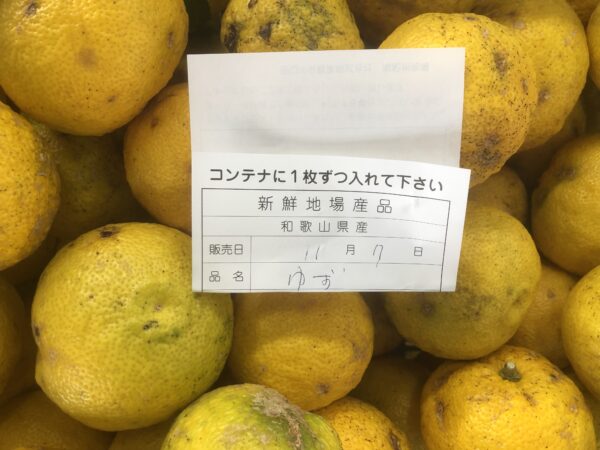 コンテナに1枚ずつ入れて下さい
新鮮地場産品
和歌山県産
販売日 11月7日
品名 ゆず